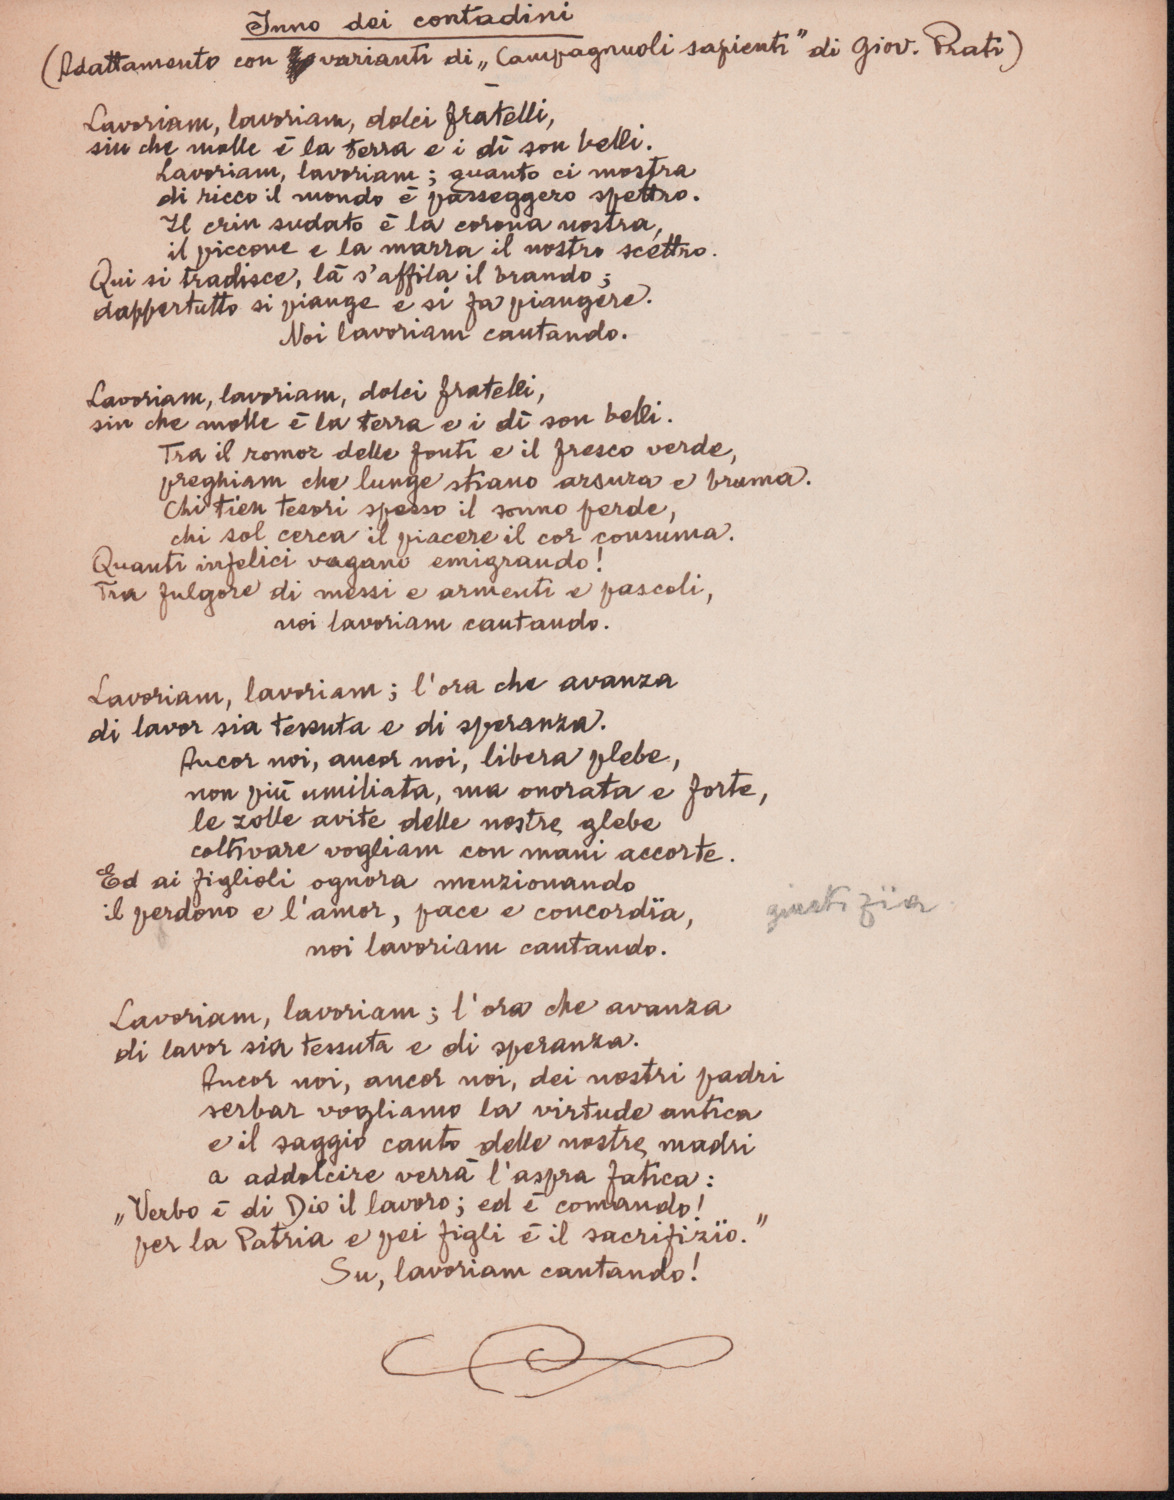 Inno dei contadini
(Adattamento con varianti di „Campagnuoli sapienti” di Giov. Prati)
Lavoriam, lavoriam, dolci fratelli,
sin che molle ē la terra e i dī son belli.
Lavoriam, lavoriam; quanto ci mostra
di ricco il mondo ē passeggero spettro.
Il crin sudato ē la corona nostra,
il piccone e la marra il nostro scettro.
Qui si tradisce, lā s'affila il brando;
dappertutto si piange e si fa piangere.
Noi lavoriam cantando.
Lavoriam, lavoriam, dolci fratelli,
sin che molle ē la terra e i dī son belli.
Tra il romor delle fonti e il fresco verde,
preghiam che lunge stiano arsura e bruma.
Chi tien tesori spesso il sonno perde,
chi sol cerca il piacere il cor consuma.
Quanti infelici vagano emigrando!
Tra fulgore di messi e armenti e pascoli,
noi lavoriam cantando.
Lavoriam, lavoriam; l'ora che avanza
di lavor sia tessuta e di speranza.
Ancor noi, ancor noi, libera plebe,
non piū umiliata, ma onorata e forte,
le zolle avite delle nostre glebe
coltivare vogliam con mani accorte.
Ed ai figlioli ognora menzionando
il perdono e l'amor, pace e concordïa, giustizïa
noi lavoriam cantando.
Lavoriam, lavoriam; l'ora che avanza
di lavor sia tessuta e di speranza.
Ancor noi, ancor noi, dei nostri padri
serbar vogliamo la virtude antica
e il saggio canto delle nostre madri
a addolcire verrā l'aspra fatica:
„Verbo ē di Dio il lavoro; ed ē comando!
per la Patria e pei figli ē il sacrifizïo.”
Su, lavoriam cantando!